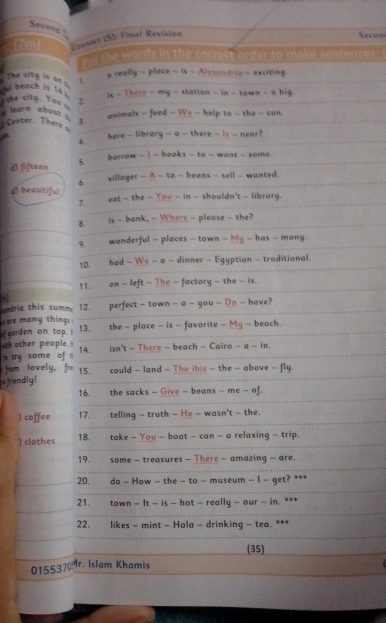 Second
Connect (5): Final Revision
Secon
(7m)
Put the words in the correct order to make sentences:
The city is on
beach is 14
the city. You
learn about
Center. There
d) fifteen
d) beautiful
this summ
are many things
garden on top.
with other people.
try some of
from lovely,
friendly!
) coffee
) clothes
1. a really – place – is – Alexandria – exciting.
2. is – There – my – station – in – town – a big.
3. animals – feed – We – help to – the – can.
4. here – library – a – there – Is – near?
5. borrow – I – books – to – want – some.
6. villager – A – to – beans – sell – wanted.
7. eat – the – You – in – shouldn't – library.
8. is – bank, – Where – please – the?
9. wonderful – places – town – My – has – many.
10. had – We – a – dinner – Egyptian – traditional.
11. on – left – The – factory – the – is.
12. perfect – town – a – you – Do – have?
13. the – place – is – favorite – My – beach.
14. isn't – There – beach – Cairo – a – in.
15. could – land – The ibis – the – above – fly.
16. the sacks – Give – beans – me – of.
17. telling – truth – He – wasn't – the.
18. take – You – boat – can – a relaxing – trip.
19. some – treasures – There – amazing – are.
20. do – How – the – to – museum – I – get? ***
21. town – It – is – hot – really – our – in. ***
22. likes – mint – Hala – drinking – tea. ***
(35)
0155370
Mr. Islam Khamis